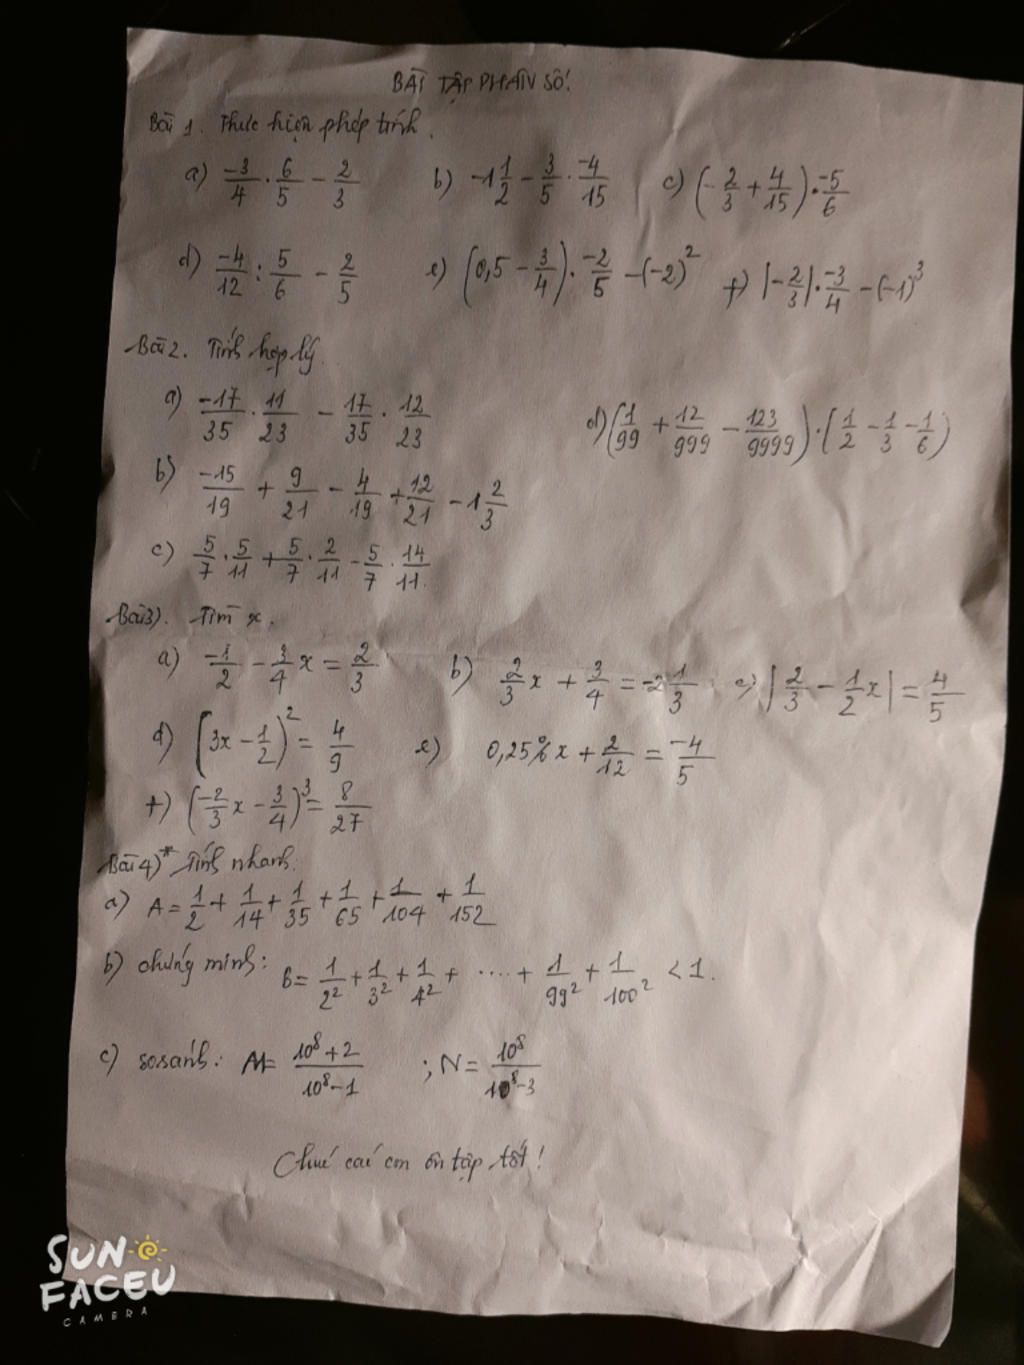 BÀI TẬP PHÂN SỐ!
Bài 1. Thực hiện phép tính.
a) -3/4 · 6/5 - 2/3 b) -1 1/2 - 3/5 · -4/15 c) (-2/3 + 4/15) · -5/6
d) -4/12 : 5/6 - 2/5 e) (0,5 - 3/4) · -2/5 - (-2)² f) |-2/3| · -3/4 - (-1)³
Bài 2. Tính hợp lý.
a) -17/35 · 11/23 - 17/35 · 12/23 d) (1/99 + 12/999 - 123/9999) · (1/2 - 1/3 - 1/6)
b) -15/19 + 9/21 - 4/19 + 12/21 - 1 2/3
c) 5/7 · 5/11 + 5/7 · 2/11 - 5/7 · 14/11.
Bài 3). Tìm x.
a) -1/2 - 3/4 x = 2/3 b) 2/3 x + 3/4 = -2 1/3 c) |2/3 - 1/2 x| = 4/5
d) (3x - 1/2)² = 4/9 e) 0,25% x + 2/12 = -4/5
f) (-2/3 x - 3/4)³ = 8/27
Bài 4)* Tính nhanh.
a) A = 1/2 + 1/14 + 1/35 + 1/65 + 1/104 + 1/152
b) chứng minh: B = 1/2² + 1/3² + 1/4² + .... + 1/99² + 1/100² < 1.
c) so sánh: M = 10⁸+2/10⁸-1 ; N = 10⁸/10⁸-3
Chúc các con ôn tập tốt!
SUN
FACEU
CAMERA